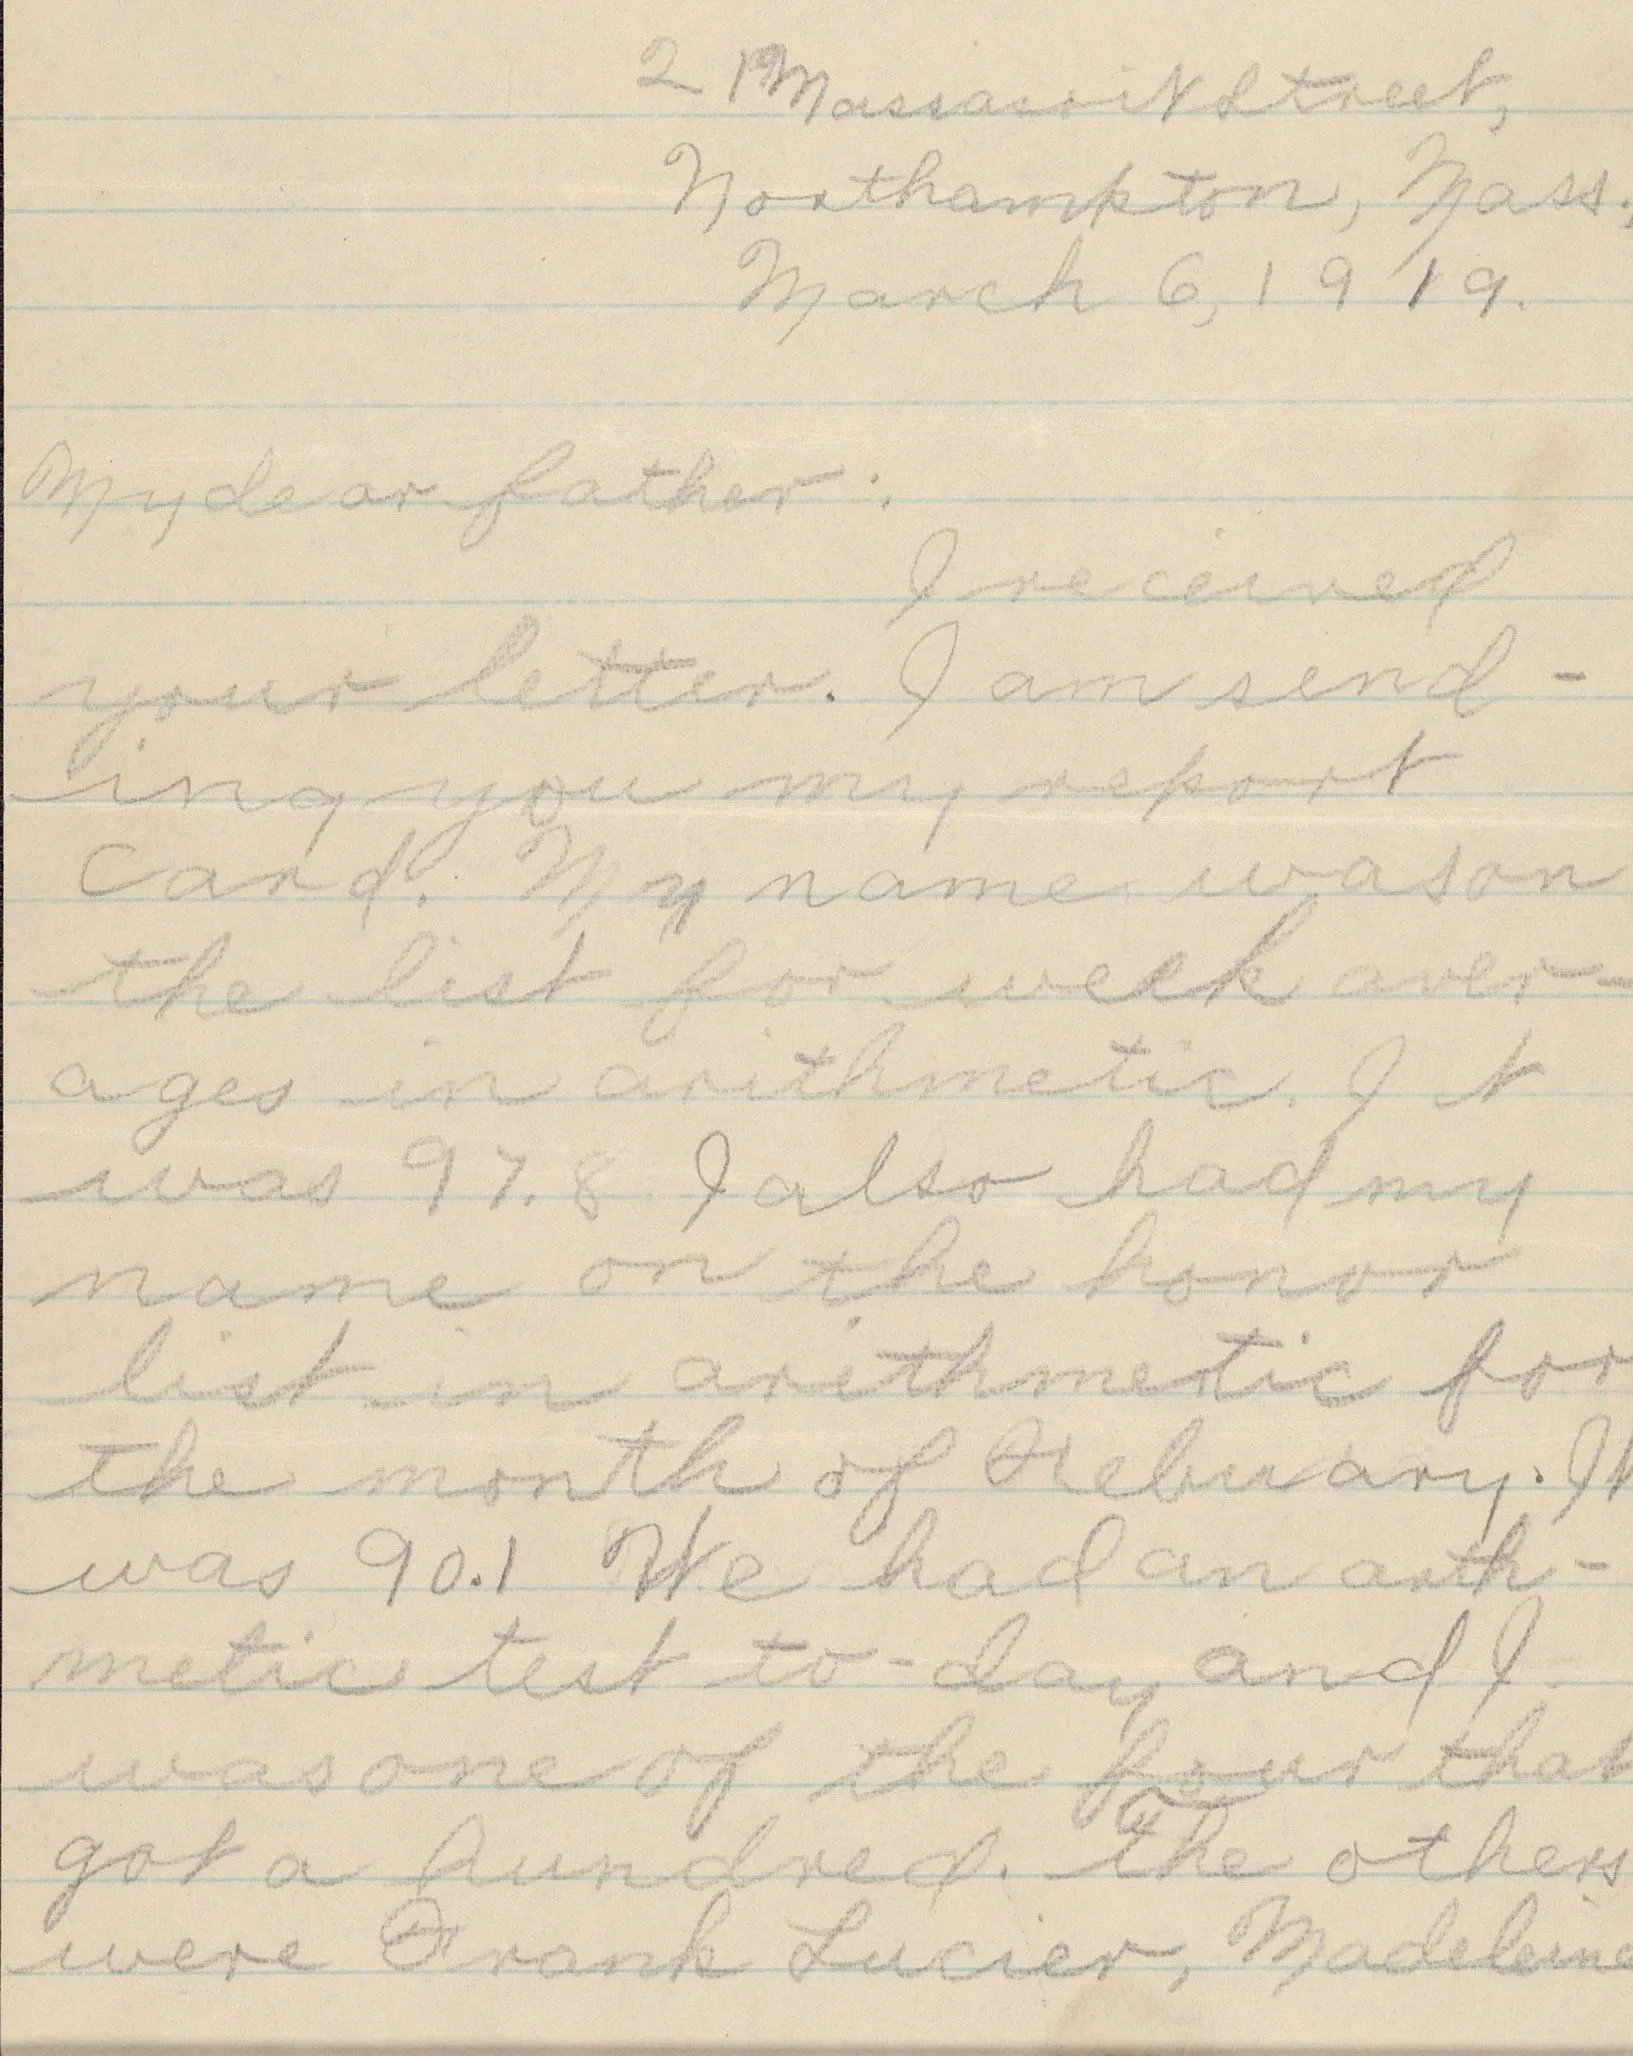 21 Massasoit Street,
Northampton, Mass.,
March 6, 1919.
My dear father:
I received
your letter. I am send-
ing you my report
card. My name was on
the list for week aver-
ages in arithmetic. It
was 97.8 I also had my
name on the honor
list in arithmetic for
the month of Febuary. It
was 90.1 We had an arth-
metic test to-day and I
was one of the four that
got a hundred. The others
were Frank Lucier, Madeleine